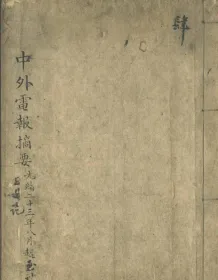 肆
中外電報摘要 光緒二十三年八月起